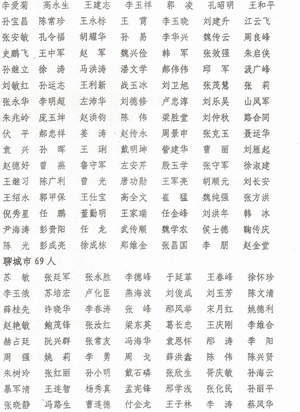 李爱菊 高永生 王建志 李玉祥 郭凌 孔昭明 王和平
孙宝昌 陈常珍 王永标 王霄 李玉晓 刘建升 江云飞
张安敏 孔令福 胡耀华 孙易 李华兴 魏传云 周良峰
史鹏飞 王中军 赵军 魏兴俭 韩军 张效强 朱启侠
孙继立 徐涛 马洪涛 潘文学 郝伟伟 邱军 汲广峰
刘敏红 孙运志 王利新 战玉冰 刘卫旭 张茂慧 张莉
张永华 李明超 左沛华 刘德修 卢忠淳 刘乐昊 山凤军
朱兆岭 庞玉坤 赵洪钧 陈伟 梁胜堂 刘仲秋 路合同
伏平 郝忠祥 姜涛 赵传永 周景申 张克玉 聂运华
袁兴 孙晖 王琍 戴明坤 管建华 曹丽 刘雁起
赵德好 曾燕 鲁守军 左安芹 殷玉学 张守军 徐淑建
王继习 陈广利 曾光 唐功勋 王军亮 胡顺元 刘长安
王绍永 郭甲保 王仕宝 高全文 崔猛 魏纯强 张方洪
倪秀星 任鹏 董勤明 王家瑞 任金峰 刘洪年 韩冰
尹海涛 彭贵阳 任龙 武传顺 魏学农 侯士德 鞠传庆
陈光 彭成亮 徐成栋 郑维金 张昌国 李朋 赵金堂
聊城市69人
苏敏 张延军 张永胜 李德峰 于延革 王春峰 徐怀珍
李玉俄 苏培宏 卢化臣 燕海波 刘俊成 刘玉芳 陈文清
薛桂先 许晓华 李春涛 张峰 邢凤华 宋月红 姚德利
赵艳敏 鲍茂锋 张汝红 梁东英 葛长忠 王庆刚 李维合
赫占延 阮兴群 张常友 冯海华 袁恩怀 邢涛 李阳
周强 姚莉 李勇 周戈 薛洪鑫 陈伟 陈兴贤
朱树玲 张红丽 孙小明 戴石磷 张欣生 胥庆敏 孙海云
暴军清 王连智 杨秀真 孟宪锋 邢学浅 张化民 孙丽平
张晓静 冯路生 曹连德 付金龙 王子林 李涛 蔡凤华